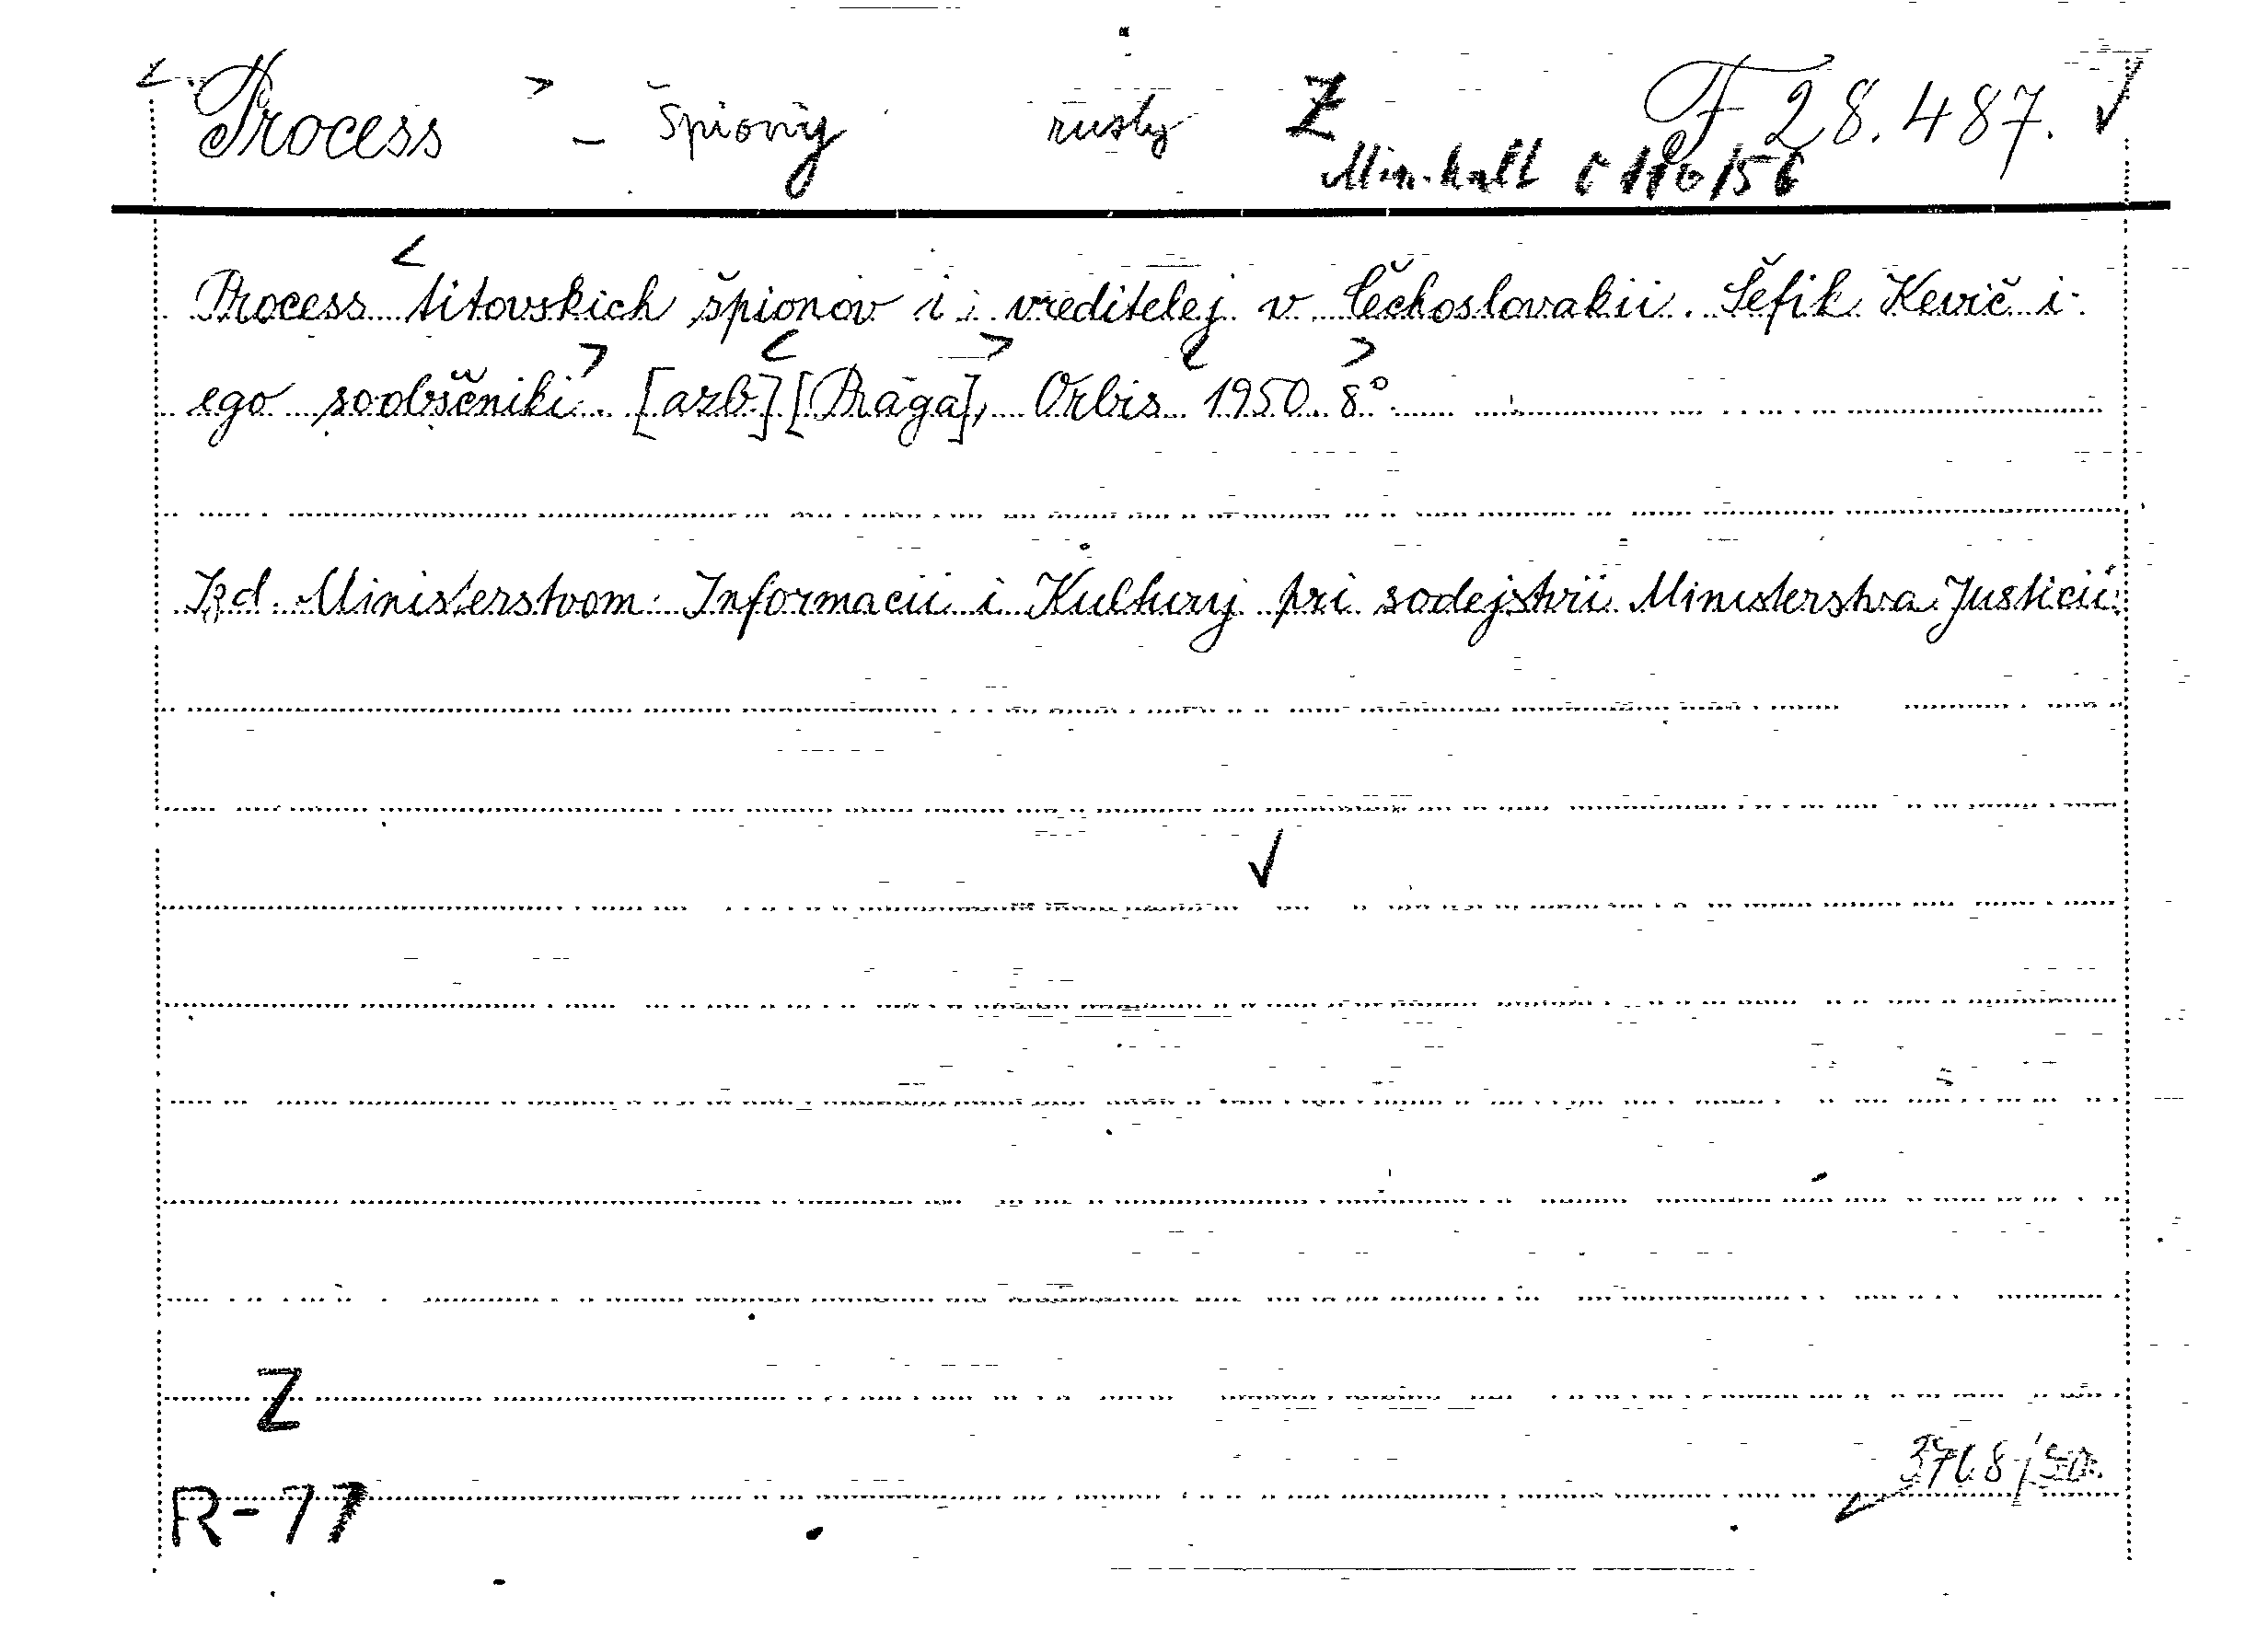 Process – špiony rusky Z F 28.487.
Min. kult č 110/56
Process titovskich špionov i vreditelej v Čechoslovakii. Šefik Kevič i
ego soobščniki. [azb.] [Praga], Orbis 1950. 8°.
Izd. Ministerstvom Informacii i Kultury pri sodejstvii Ministerstva Justicii.
Z
R-77
3768/50.